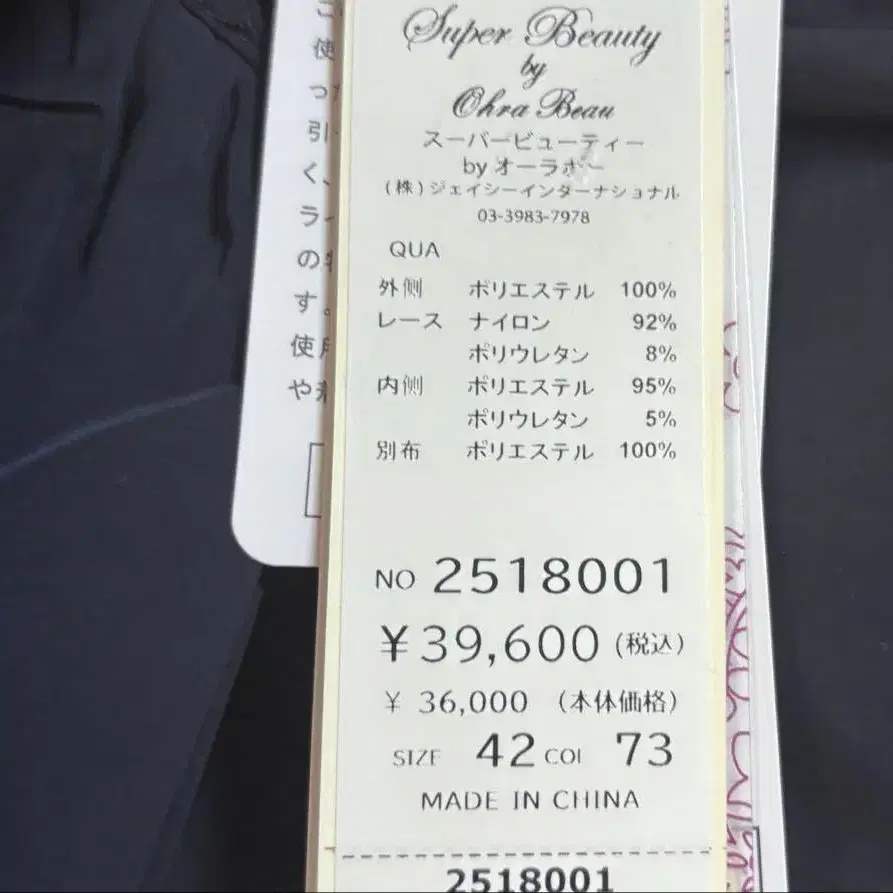 Super Beauty
by
Ohra Beau
スーパービューティー
by オーラボー
(株)ジェイシーインターナショナル
03-3983-7978
QUA
外側 ポリエステル 100%
レース ナイロン 92%
ポリウレタン 8%
内側 ポリエステル 95%
ポリウレタン 5%
別布 ポリエステル 100%
NO 2518001
¥39,600 (税込)
¥ 36,000 (本体価格)
SIZE 42 COL 73
MADE IN CHINA
2518001
使
っ
引
く、
ラ
の
す。
使
や